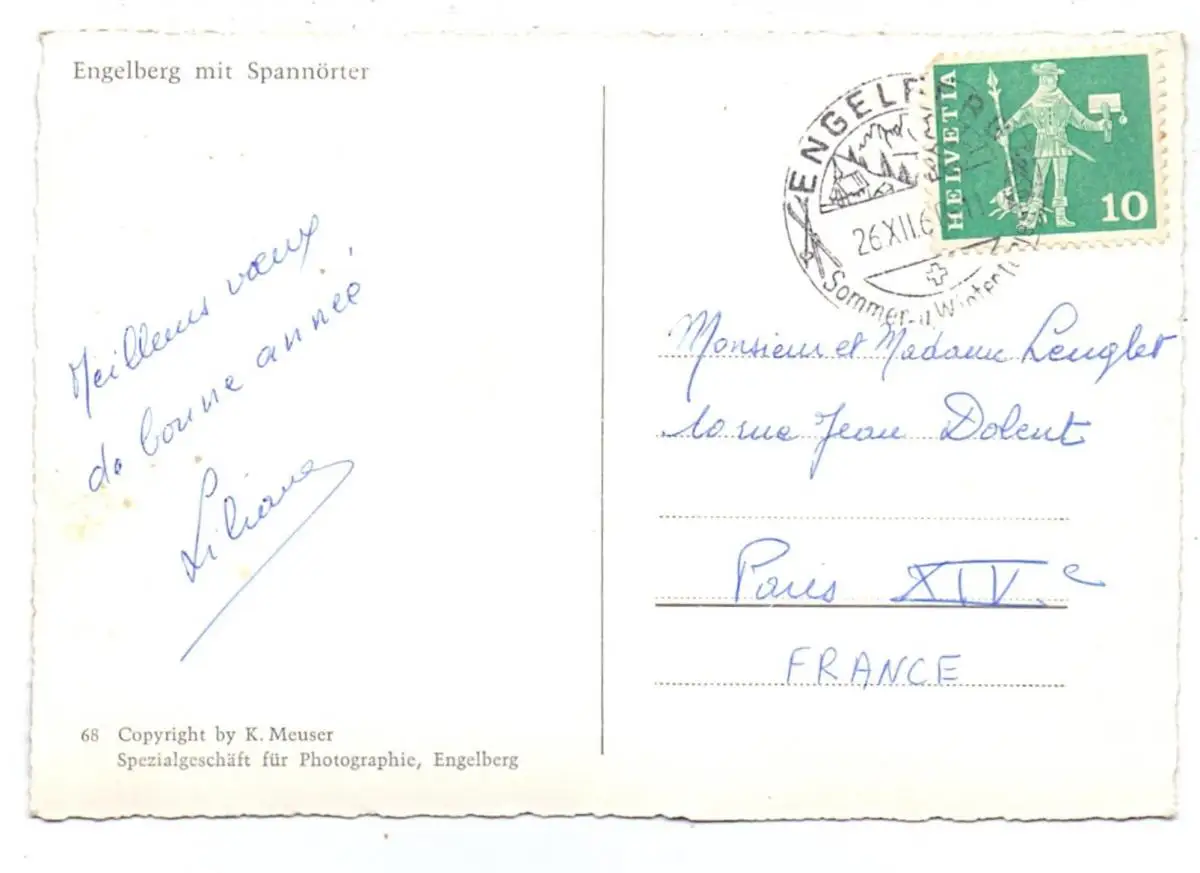 Engelberg mit Spannörter
ENGELBERG
HELVETIA
10
26.XII.6
Sommer- u. Winter
Meilleurs vœux
de bonne année
Liliane
Monsieur et Madame Lenglet
10 rue Jean Dolent
Paris XIV.e
FRANCE
68 Copyright by K. Meuser
Spezialgeschäft für Photographie, Engelberg